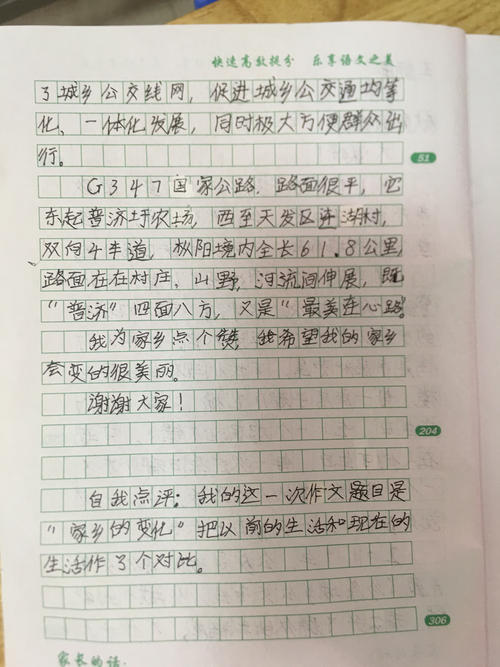 快速高效提分 乐享语文之美
了城乡公交线网，促进城乡公交通均等
化、一体化发展，同时极大方便群众出
行。
51
G347国家公路，路面很平，它
东起普济圩农场，西至天发区进湖村，
双向4车道，枞阳境内全长61.8公里，
路面在在村庄、山野，河流间伸展，既
“普济”四面八方，又是“最美在心路”。
我为家乡点个赞，我希望我的家乡
会变的很美丽。
谢谢大家！
204
自我点评：我的这一次作文题目是
“家乡的变化”把以前的生活和现在的
生活作了个对比。
306
家长的话：